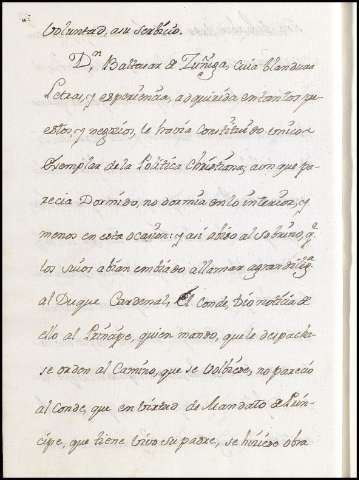 voluntad, a su serbicio.
D.ⁿ Baltasar de Zuñiga, cuia blandura
Letras, y esperiencia, adquirida en tantos pu-
estos, y negocios, le havia constituido unico
Exemplar de la Politica Christiana; aunque pa-
recia Dormido, no dormia en lo interior, y
menos en esta ocasion: y asi abiso al sobrino, q.ᵉ
los suios abian embiado a llamar a gran dilig.ᵃ
al Duque Cardenal, El Conde, Dio noticia de
ello al Principe, quien mando, que le despacha-
se orden al Camino, que se volbiese, no parecio
al Conde, que en birtud de Mandato de Prin-
cipe, que tiene vivo su padre, se hiciese obra